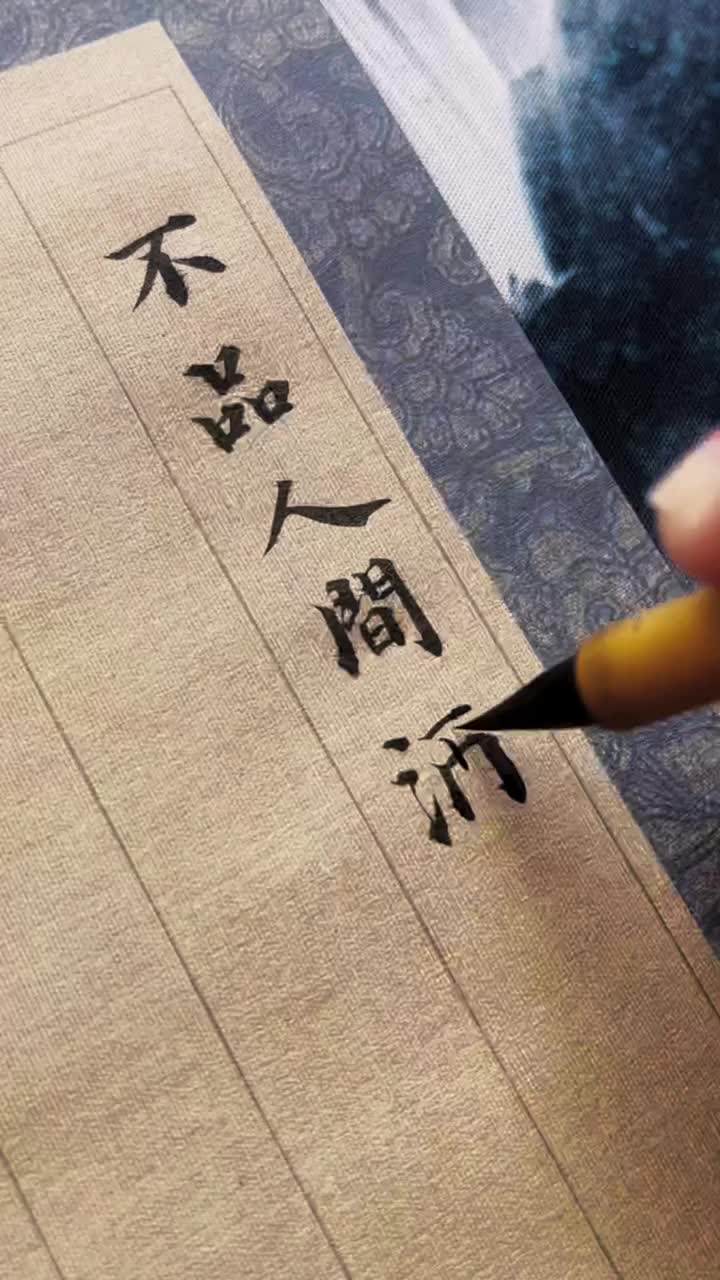 不品人間